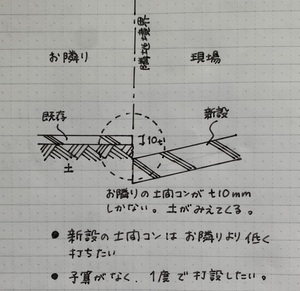 お隣り
隣地境界
現場
既存
新設
10t
土
お隣りの土間コンがt10mm
しかない。土がみえてくる。
● 新設の土間コンはお隣りより低く
打ちたい
● 予算がなく、1度で打設したい。